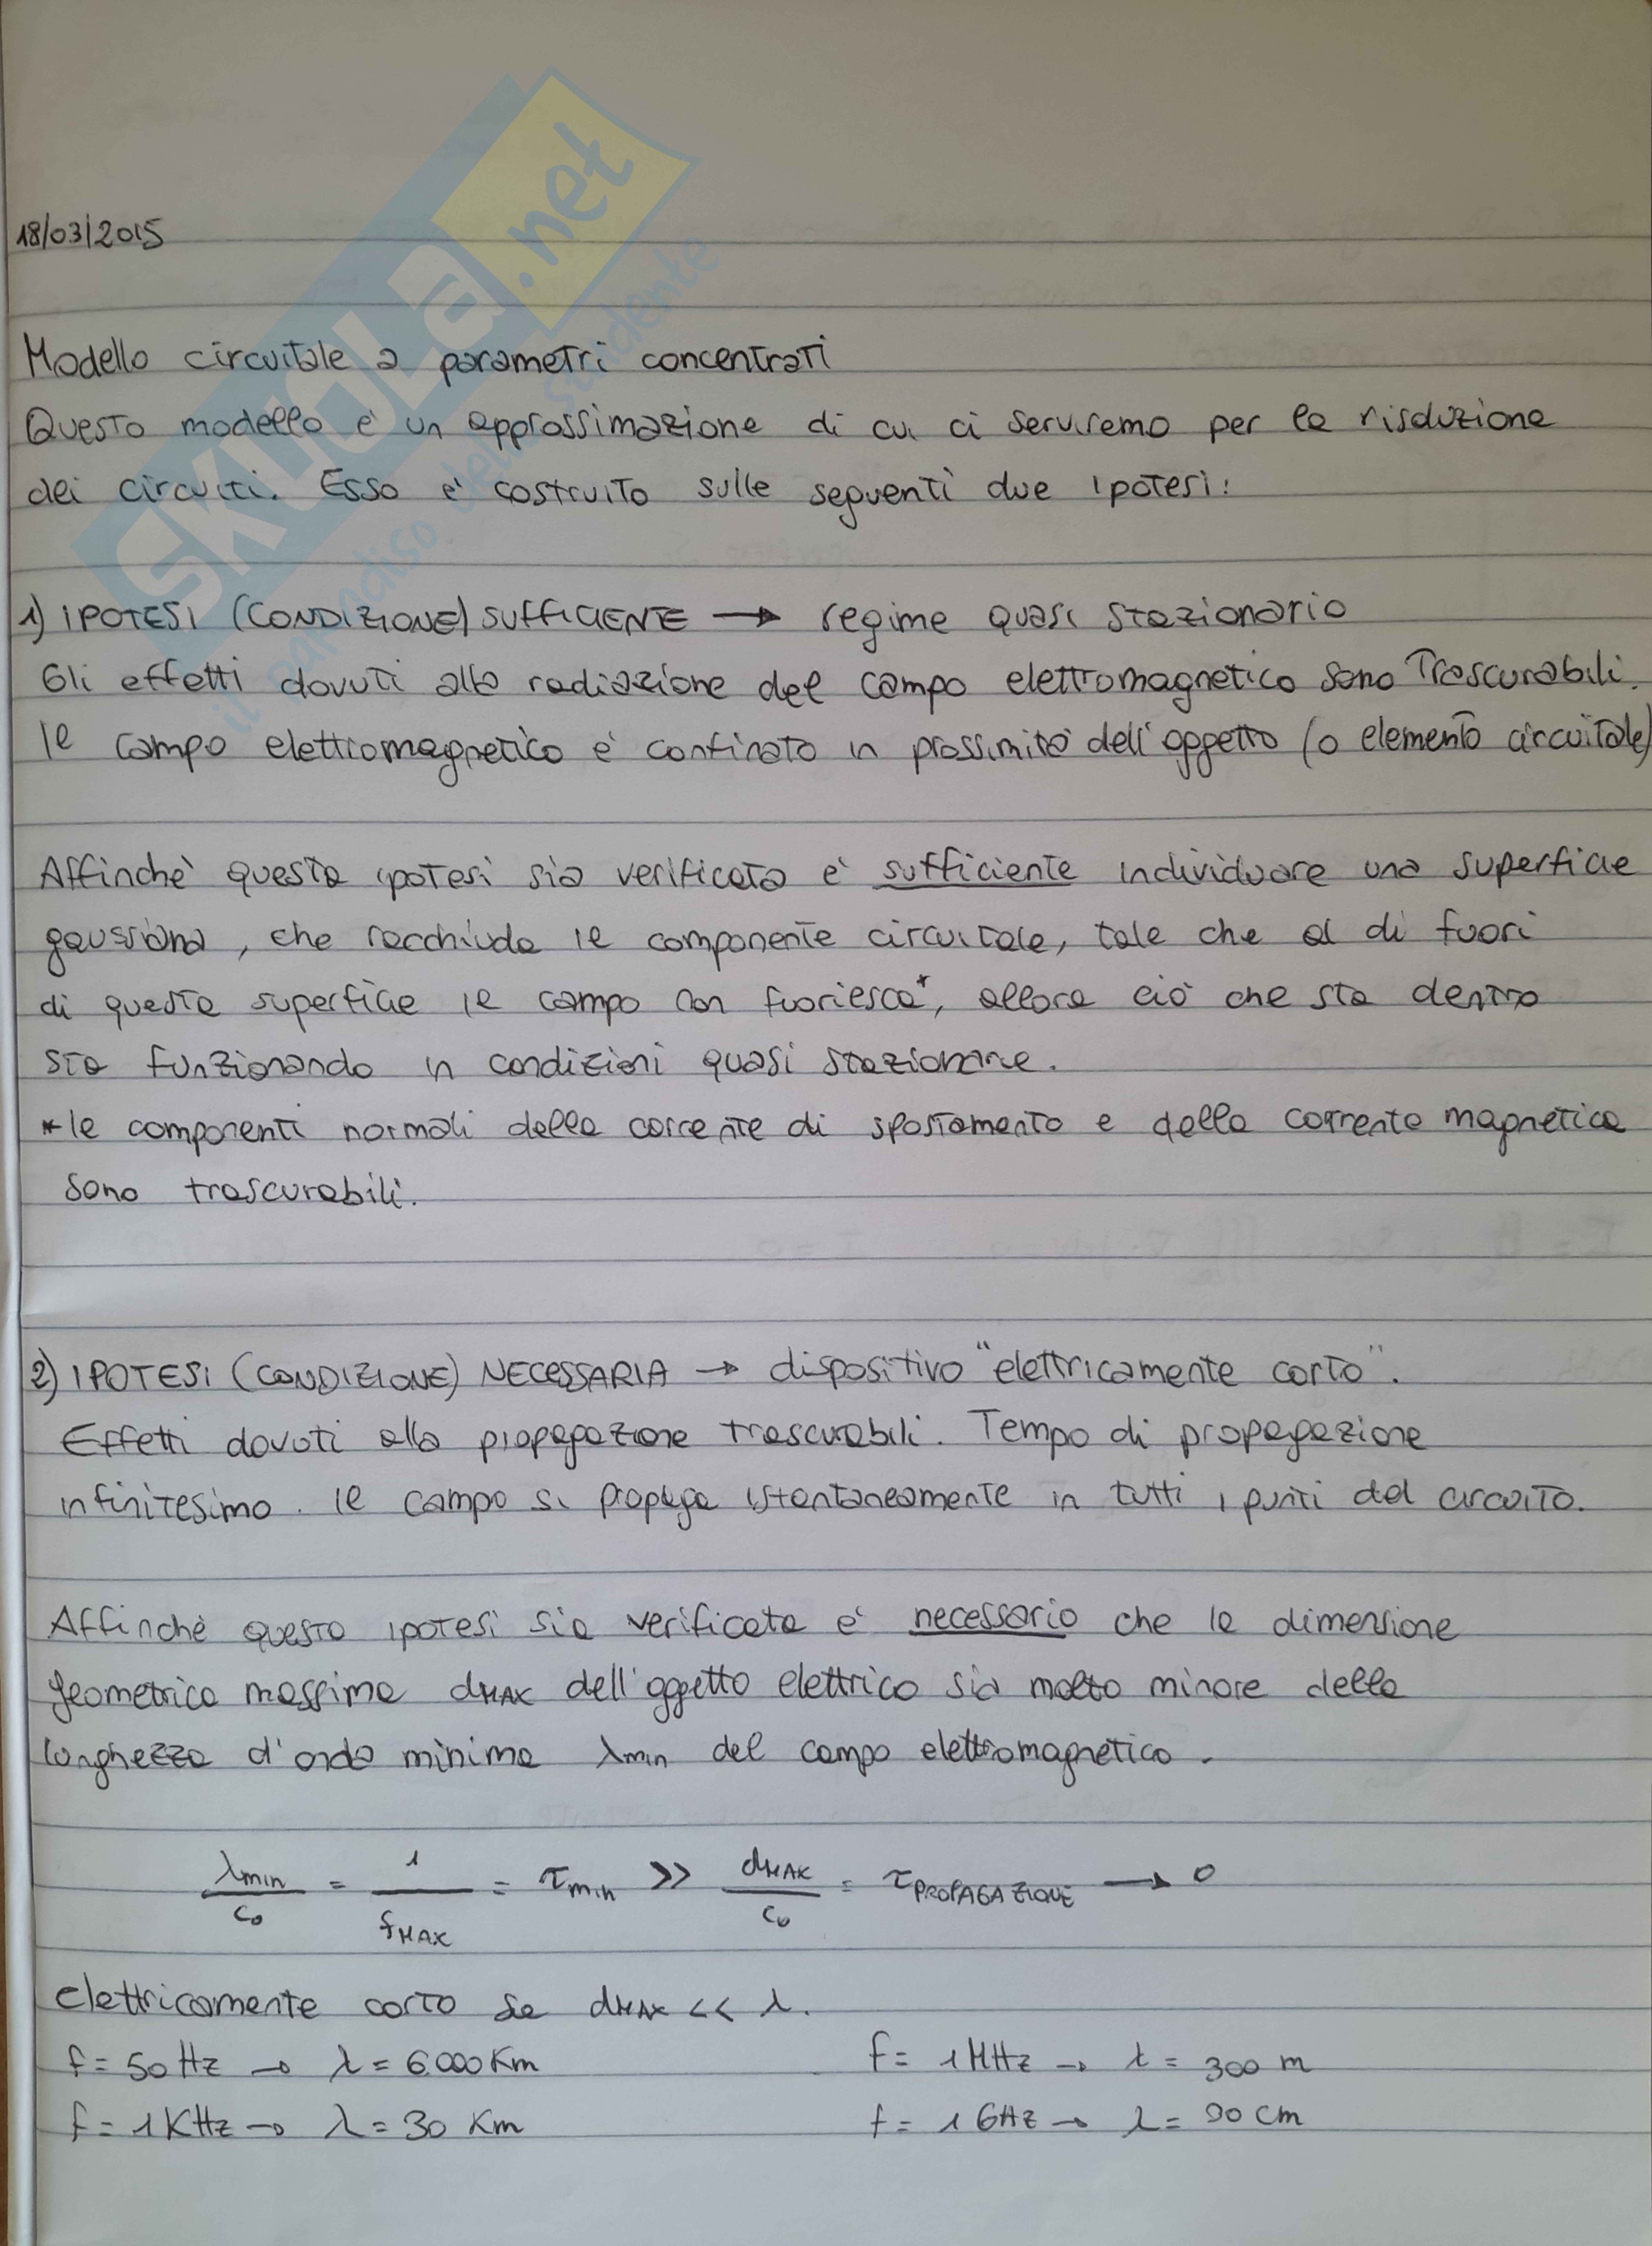 SKUOLA.net
il paradiso dello studente
18/03/2015
Modello circuitale a parametri concentrati
Questo modello è un approssimazione di cui ci serviremo per la risoluzione
dei circuiti. Esso è costruito sulle seguenti due ipotesi:
1) IPOTESI (CONDIZIONE) SUFFICIENTE → regime quasi stazionario
Gli effetti dovuti alla radiazione del campo elettromagnetico sono trascurabili.
Il campo elettromagnetico è confinato in prossimità dell'oggetto (o elemento circuitale)
Affinchè questa ipotesi sia verificata è sufficiente individuare una superficie
gaussiana, che racchiuda il componente circuitale, tale che al di fuori
di questa superficie il campo non fuoriesca*, allora ciò che sta dentro
sta funzionando in condizioni quasi stazionarie.
* le componenti normali della corrente di spostamento e della corrente magnetica
sono trascurabili.
2) IPOTESI (CONDIZIONE) NECESSARIA → dispositivo "elettricamente corto".
Effetti dovuti alla propagazione trascurabili. Tempo di propagazione
infinitesimo. Il campo si propaga istantaneamente in tutti i punti del circuito.
Affinchè questa ipotesi sia verificata è necessario che la dimensione
geometrica massima dMAX dell'oggetto elettrico sia molto minore della
lunghezza d'onda minima λmin del campo elettromagnetico.
λmin/c₀ = 1/fMAX = τmin >> dMAX/c₀ = τPROPAGAZIONE → 0
elettricamente corto se dMAX << λ.
f = 50 Hz → λ = 6000 Km f = 1 MHz → λ = 300 m
f = 1 KHz → λ = 30 Km f = 1 GHz → λ = 30 cm